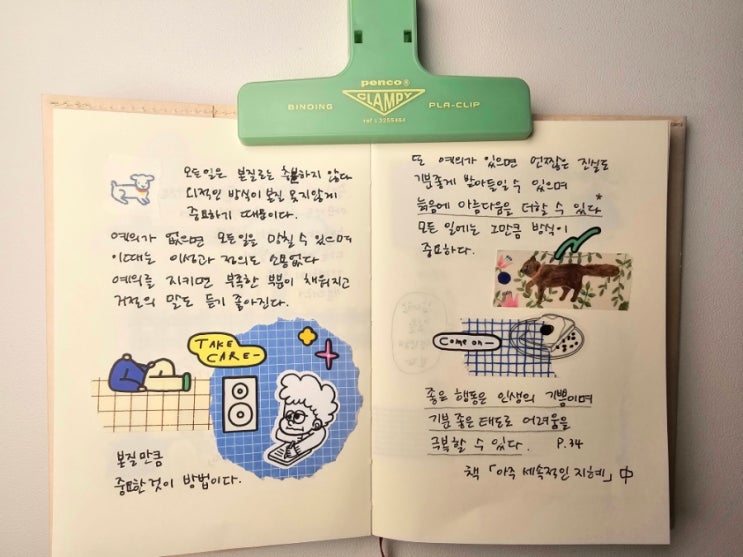 penco®
CLAMPY
BINDING
PLA-CLIP
모든일은 본질로는 충분하지 않다
외적인 방식이 본질 못지않게
중요하기 때문이다.
예의가 없으면 모든일을 망칠 수 있으며
이때는 이성과 정의도 소용없다
예의를 지키면 부족한 부분이 채워지고
거절의 말도 듣기 좋아진다.
TAKE
CARE-
본질만큼
중요한것이 방법이다.
또 예의가 있으면 언짢은 진실도
기분좋게 받아들일 수 있으며
늙음에 아름다움을 더할 수 있다*
모든 일에는 그만큼 방식이
중요하다.
Come on-
좋은 행동은 인생의 기쁨이며
기분 좋은 태도로 어려움을
극복할 수 있다. P.34
책 「아주 세속적인 지혜」 中